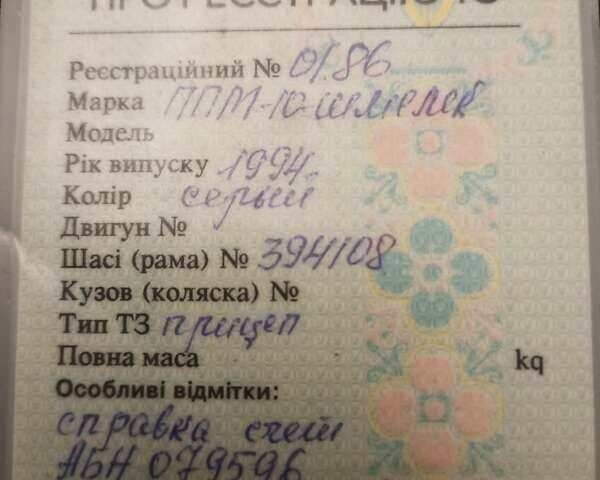 Реєстраційний № 01.86
Марка
Модель
Рік випуску 1994
Колір серый
Двигун №
Шасі (рама) № 394108
Кузов (коляска) №
Тип ТЗ прицеп
Повна маса kq
Особливі відмітки:
справка счет
АБН 079596